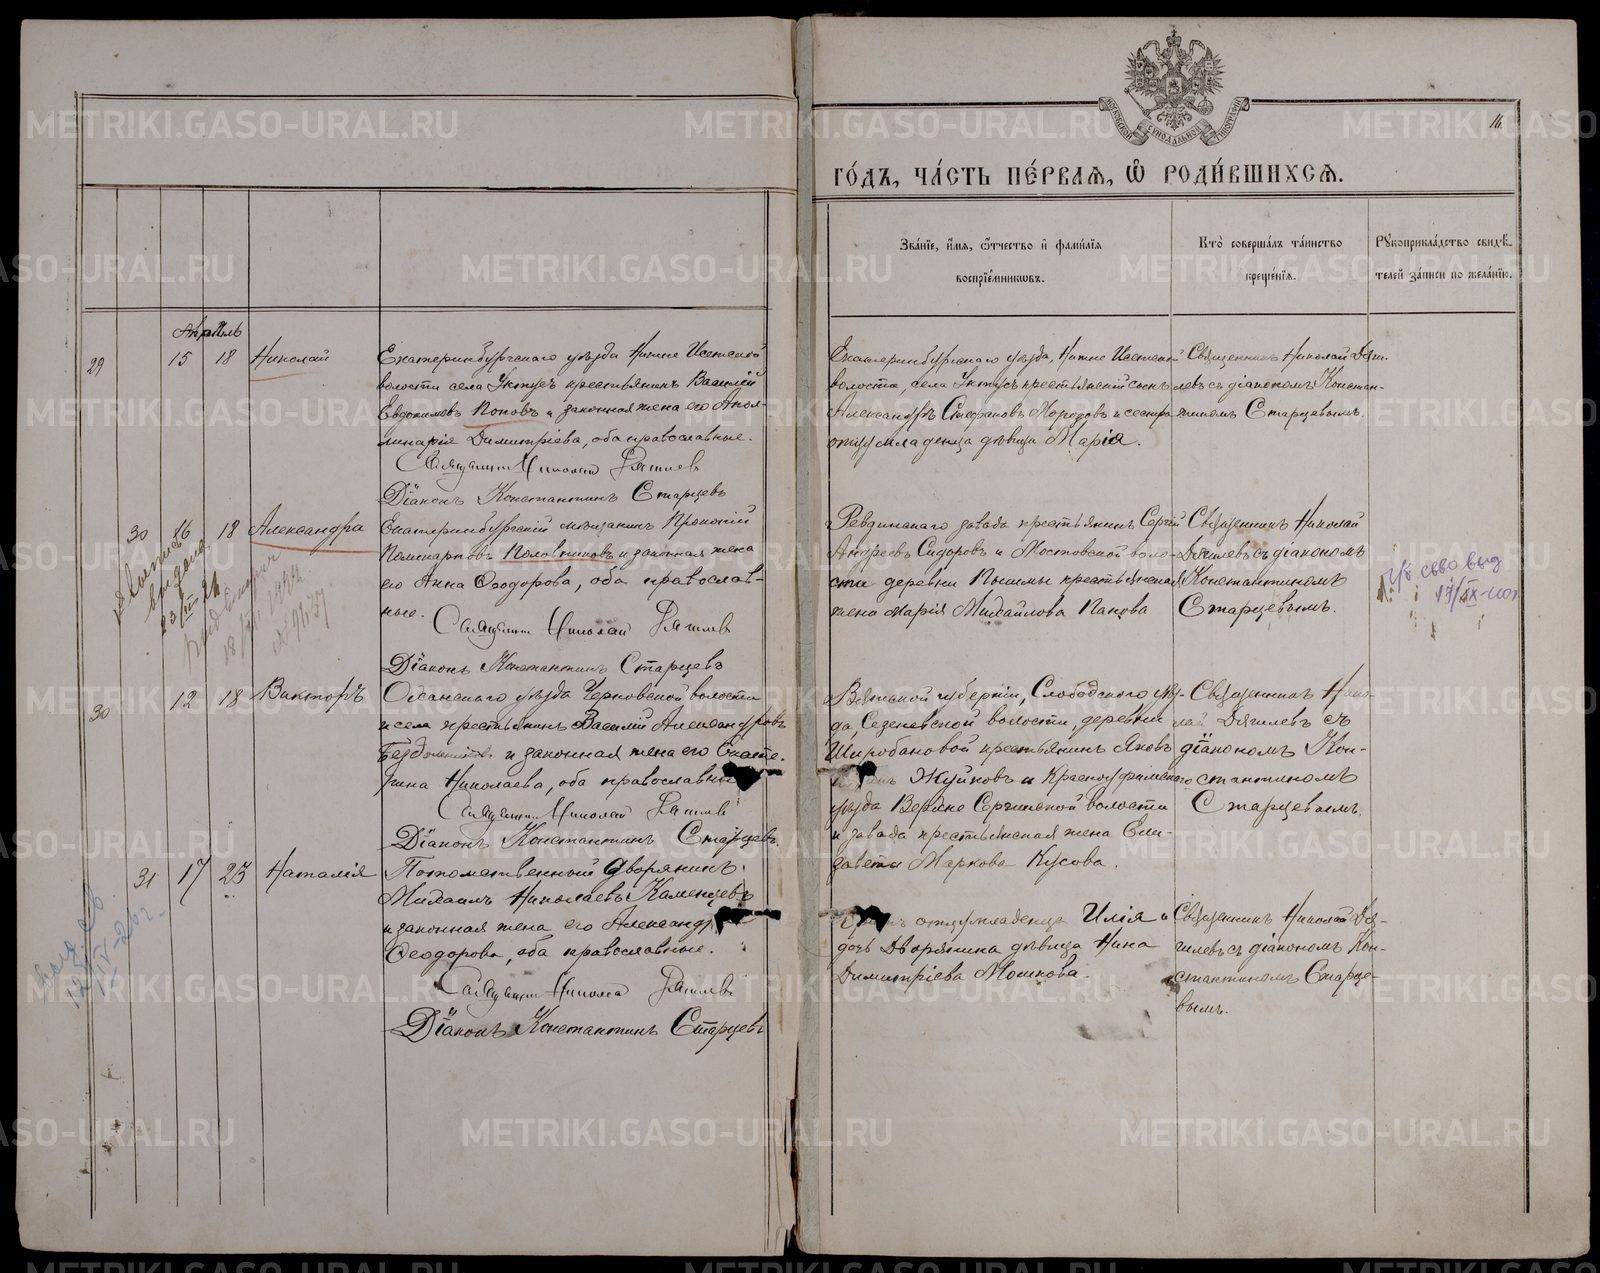 16.
МОСКОВСКОЙ СѴНОДАЛЬНОЙ ТИПОГРАФІИ
ГО́ДЪ, ЧА́СТЬ ПЕ́РВАѦ, Ѽ РОДИ́ВШИХСѦ.
Зва́нїе, и҆́мѧ, ѻ҆́тчество и҆ фами́лїѧ
воспрїе́мникѡвъ.
Кто̀ соверша́лъ та́инство
креще́нїѧ.
Рꙋкоприкла́дство свидѣ́-
телей за́писи по жела́нїю.
Апрѣль
29 15 18 Николай
Екатеринбургскаго уѣзда Нижне Исетской
волости села Уктусъ крестьянинъ Василій
Евдокимовъ Поповъ и законная жена его Апол-
линарія Димитріева, оба православные.
Священникъ Николай Дягилевъ
Діаконъ Константинъ Старцевъ
Екатеринбургскаго уѣзда, Нижне Исетской
волости, села Уктусъ крестьянскій сынъ
Александръ Стефановъ Мородовъ и сестра
отцу младенца дѣвица Марія.
Священникъ Николай Дяги-
левъ съ діакономъ Констан-
тиномъ Старцевымъ.
30 16 18 Александра
Екатеринбургскій мѣщанинъ Прокопій
и законная жена
его Анна Ѳеодорова, оба православ-
ные.
Священникъ Николай Дягилевъ
Діаконъ Константинъ Старцевъ
Ревдинскаго завода крестьянинъ Сергій
Андреевъ Сидоровъ и Мостовской воло-
сти деревни Пышмы крестьянская
жена Марія Михайлова Панова
Священникъ Николай
Дягилевъ съ діакономъ
Константиномъ
Старцевымъ.
выдано
30 12 18 Викторъ
Осинскаго уѣзда Черновской волости
и села крестьянинъ Василій Александровъ
и законная жена его Екате-
рина Николаева, оба православные
Священникъ Николай Дягилевъ
Діаконъ Константинъ Старцевъ
Вятской губерніи, Слободского уѣз-
да, Сезеневской волости, деревни
Широбановой крестьянинъ Яковъ
Жуйковъ и Красноуфимскаго
уѣзда Верхне Сергинской волости
и завода крестьянская жена Ели-
завета Маркова Кусова.
Священникъ Нико-
лай Дягилевъ съ
діакономъ Кон-
стантиномъ
Старцевымъ.
31 17 23 Наталія
Потомственный дворянинъ
Михаилъ Николаевъ Каменцевъ
и законная жена его Александра
Ѳеодорова, оба православные.
Священникъ Николай Дягилевъ
Діаконъ Константинъ Старцевъ
отцу младенца Илія и
дочь Дворянина дѣвица Нина
Димитріева Мошкова.
Священникъ Николай Дя-
гилевъ съ діакономъ Кон-
стантиномъ Старце-
вымъ.
METRIKI.GASO-URAL.RU